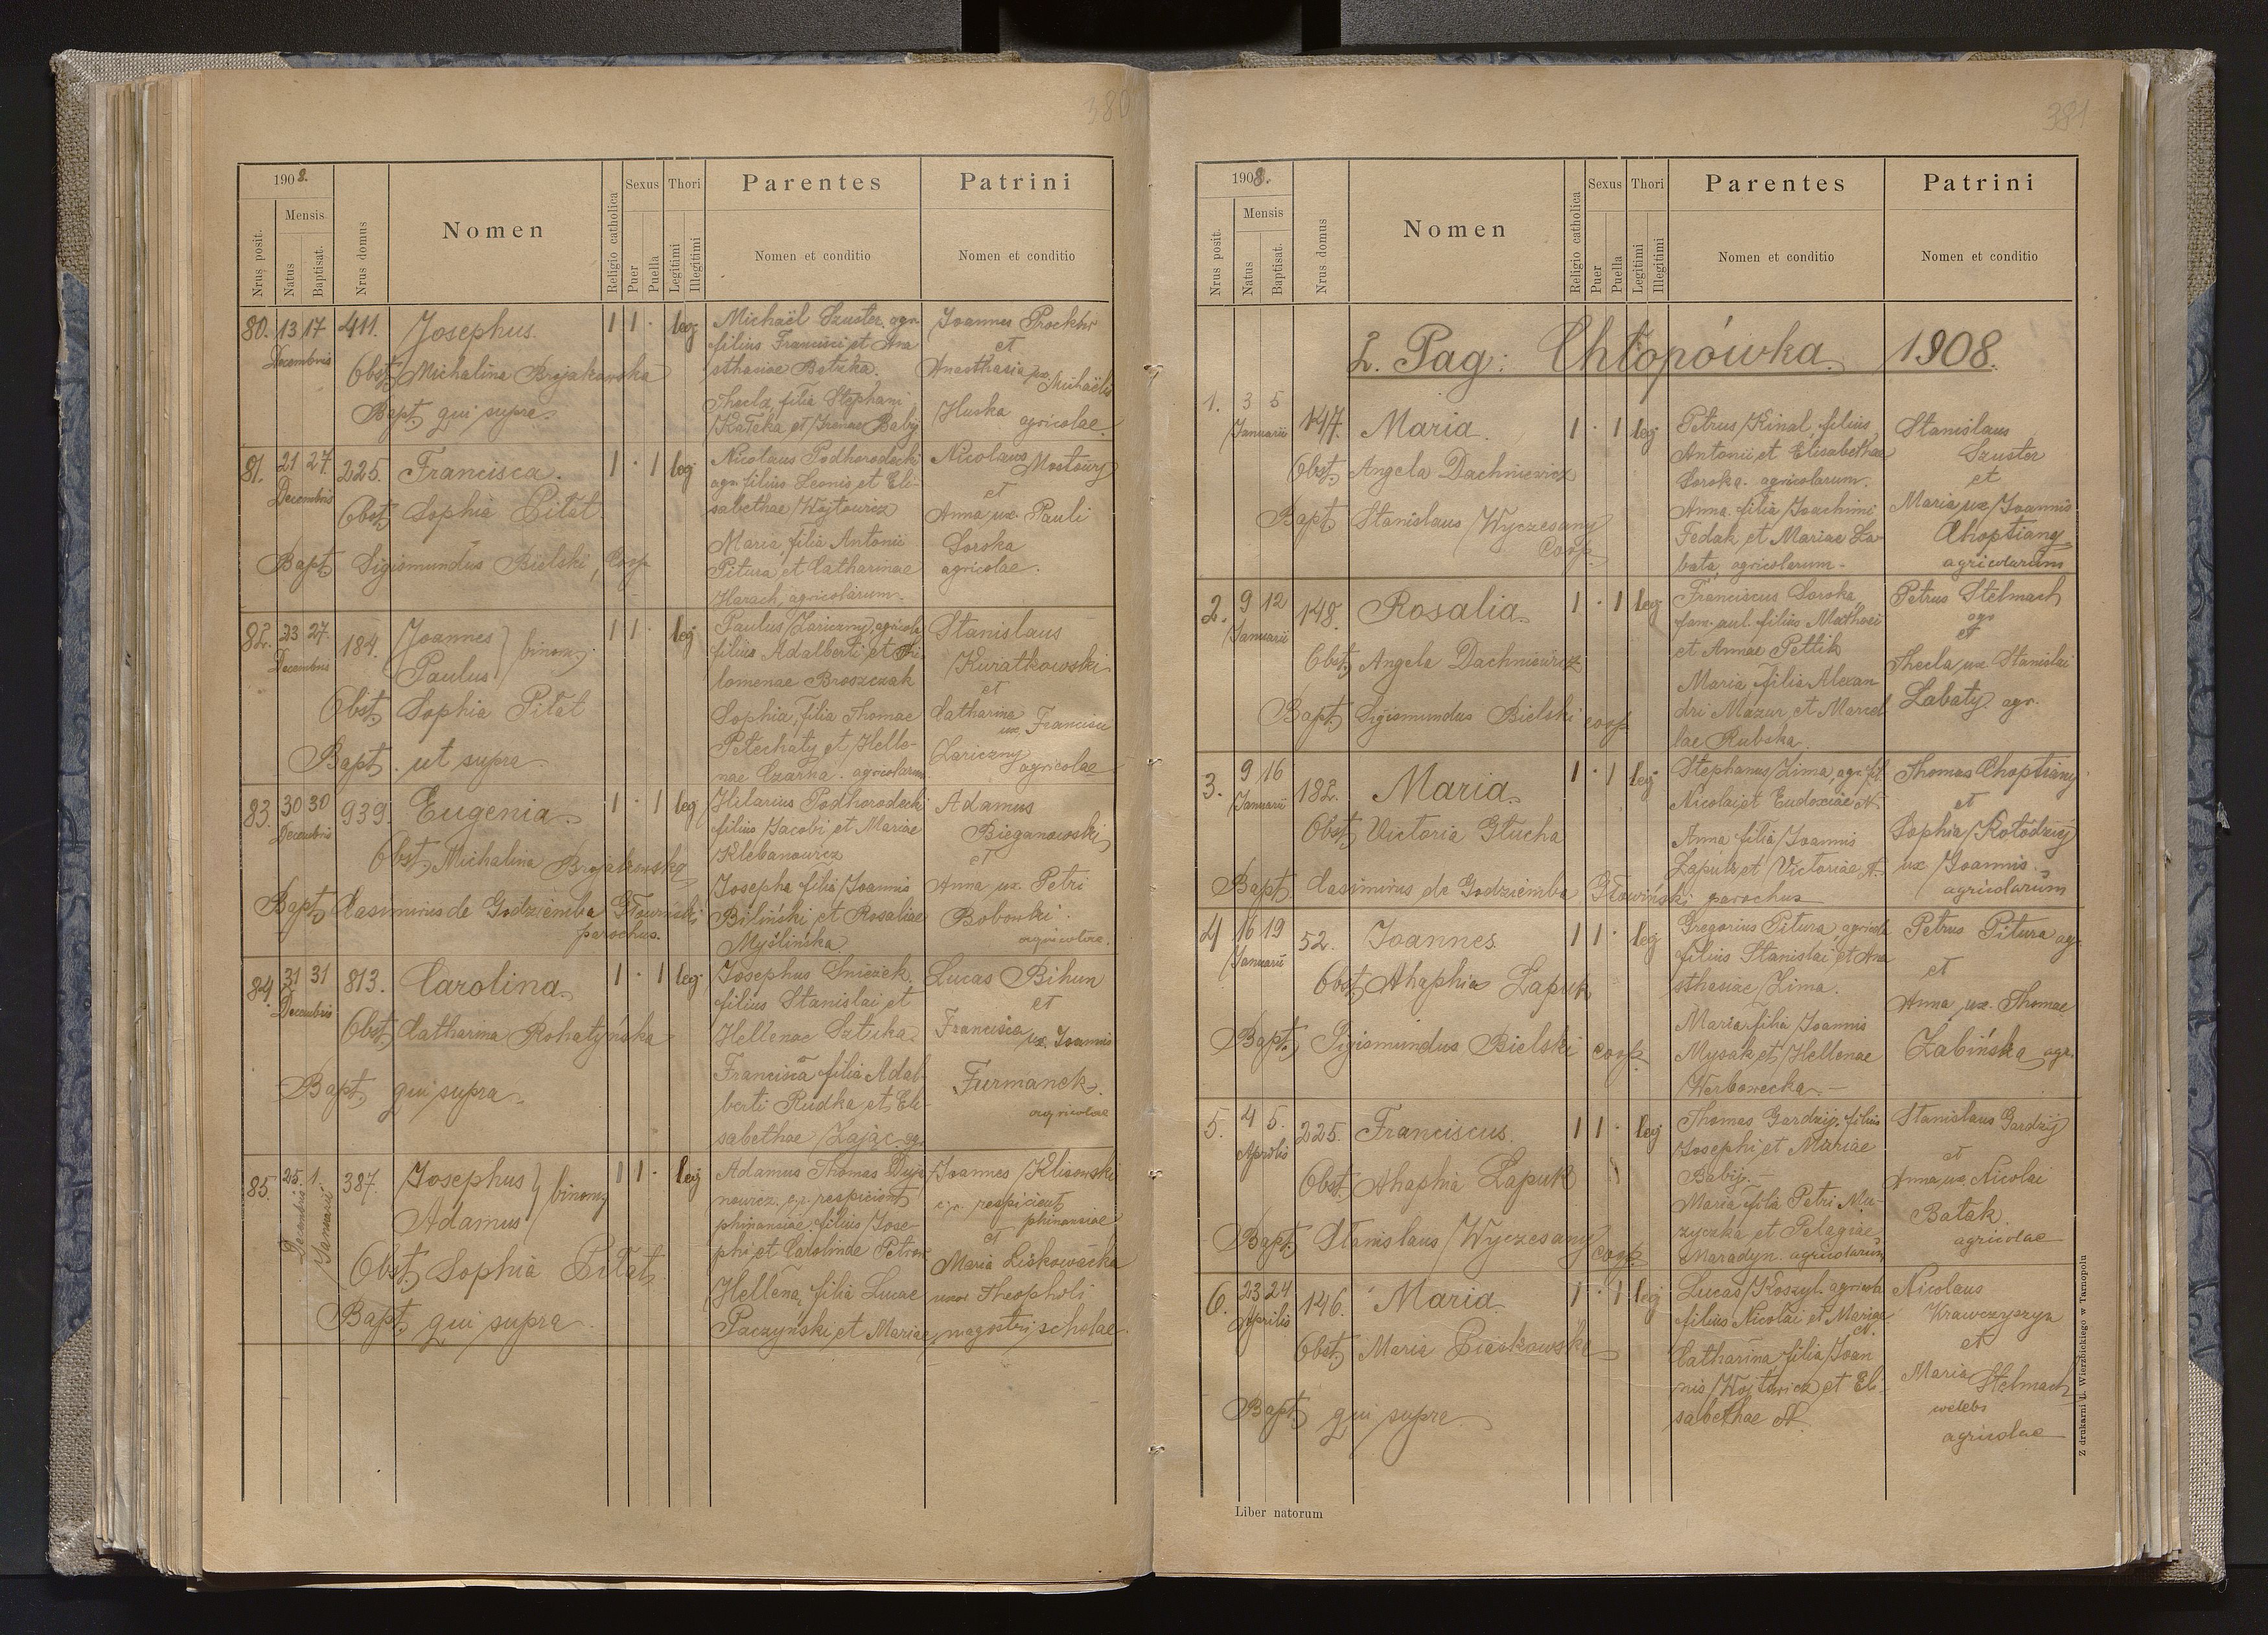 380
1908.
Nrus posit.
Mensis
Natus
Baptisat.
Nrus domus
Nomen
Religio catholica
Sexus
Puer
Puella
Thori
Legitimi
Illegitimi
Parentes
Nomen et conditio
Patrini
Nomen et conditio
80. 13 17 Decembris 411. Josephus. 1 1 · leg
Obst. Michalina Brojakowska
Bapt. qui supra.
Michaël Szuster agr.
filius Francisci et Ana
sthasiae Batzka.
Thecla, filia Stephani
Kateka et Irenae Babij
Joannes Prockhr
et
Anasthasia ux. Michaëlis
Huska
agricolae.
81. 21 27. Decembris 225. Francisca. 1 · 1 leg
Obst. Sophia Pitat
Bapt. Sigismundus Bielski, Coop
Nicolaus Podhorodecki
agr. filius Leonis et Eli-
sabethae Wojtowicz
Maria, filia Antonii
Pitura et Catharinae
Harach, agricolarum.
Nicolaus Mostowy
et
Anna ux. Pauli
Soroka
agricolae.
82. 23 27. Decembris 184. Joannes 1 1 · leg
Paulus } binom.
Obst. Sophia Pitat
Bapt. ut supra
Paulus Zariczny, agricola
filius Adalberti et Phi
lomenae Broszczak
Sophia, filia Thomae
Petechaty et Helle-
nae Czarna. agricolarum
Stanislaus
Kwiatkowski
et
Catharina ux. Francisci
Zariczny
agricolae
83. 30 30 Decembris 939. Eugenia. 1 · 1 leg
Obst. Michalina Brojakowska
Bapt. Casimirus de Godziemba Głowiński
parochus.
Hilarius Podhorodecki
filius Jacobi et Mariae
Klebanowicz
Josepha filia Joannis
Biliński et Rosaliae
Myślińska
Adamus
Bieganowski
et
Anna ux. Petri
Bobowski
agricolae.
84. 31 31 Decembris 813. Carolina. 1 · 1 leg
Obst. Catharina Rohatyńska
Bapt. qui supra.
Josephus Snieżek
filius Stanislai et
Hellenae Satzka.
Francisca filia Adal-
berti Rudka et Eli-
sabethae Zając. agr.
Lucas Bihun
et
Francisca ux. Joannis
Furmanek.
agricolae
85. 25. 1. Decembris Januarii 387. Josephus 1 1 · leg
Adamus } binomy
Obst. Sophia Pitat.
Bapt. qui supra.
Adamus Thomas Duja
nowicz. c.r. respicient
phinansiae, filius Jose-
phi et Carolinae Petrow
Hellena, filia Lucae
Paczyński et Mariae
Joannes Klisowski
c.r. respicient
phinansiae
et
Maria Liskowacka
uxor Theopholi
magistri scholae.
381
1908.
Nrus posit.
Mensis
Natus
Baptisat.
Nrus domus
Nomen
Religio catholica
Sexus
Puer
Puella
Thori
Legitimi
Illegitimi
Parentes
Nomen et conditio
Patrini
Nomen et conditio
2. Pag: Chłopówka. 1908.
1. 3 5 Januarii 147. Maria. 1 · 1 leg
Obst. Angela Dachniewicz
Bapt. Stanislaus Wyczesany
Coop.
Petrus Kinal, filius
Antonii et Elisabethae
Soroka. agricolarum.
Anna, filia Joachimi
Fedak et Mariae La-
bata, agricolarum.
Stanislaus
Szuster
et
Maria ux. Joannis
Choptiany
agricolarum
2. 9 12 Januarii 148. Rosalia. 1 · 1 leg
Obst. Angela Dachniewicz
Bapt. Sigismundus Bielski coop.
Franciscus Soroka
fam. aul. filius Mathaei
et Annae Pettik
Maria filia Alexan
dri Mazur et Marcel
lae Rubska.
Petrus Stelmach
agr
et
Thecla ux. Stanislai
Labaty agr.
3. 9 16 Januarii 182. Maria. 1 · 1 leg
Obst. Victoria Głucha
Bapt. Casimirus de Godziemba Głowiński parochus
Stephanus Zima, agr. fil.
Nicolai et Eudoxiae N.
Anna filia Joannis
Łapuk et Victoriae N.
Thomas Choptiany
et
Sophia Kołodziej
ux Joannis.
agricolarum
4 16 19 Januarii 52. Joannes. 1 1 · leg
Obst. Ahaphia Łapuk
Bapt. Sigismundus Bielski coop.
Gregorius Pitura, agricola
filius Stanislai et Ana
sthasiae Zima.
Maria filia Joannis
Mysak et Hellenae
Werbowecka.
Petrus Pitura agr.
et
Anna ux. Thomae
Żabińska agr.
5. 4 5. Aprilis 225. Franciscus. 1 1 · leg
Obst. Ahaphia Łapuk
Bapt. Stanislaus Wyczesany coop.
Thomas Gardzij, filius
Josephi et Mariae
Babij.
Maria filia Petri Mu-
zyczka et Pelagiae
Maradyn. agricolarum
Stanislaus Gardzij
et
Anna ux. Nicolai
Batak
agricolae
6. 23 24 Aprilis 146. Maria. 1 · 1 leg
Obst. Maria Piaskowska
Bapt. qui supra
Lucas Koszyl. agricola
filius Nicolai et Mariae
N.
Catharina filia Joan
nis Wojtowicz et Eli-
sabethae N.
Nicolaus
Krawczyszyn
et
Maria Stelmach
coelebs
agricolae
Liber natorum
Z drukarni L. Wierzbickiego w Tarnopolu